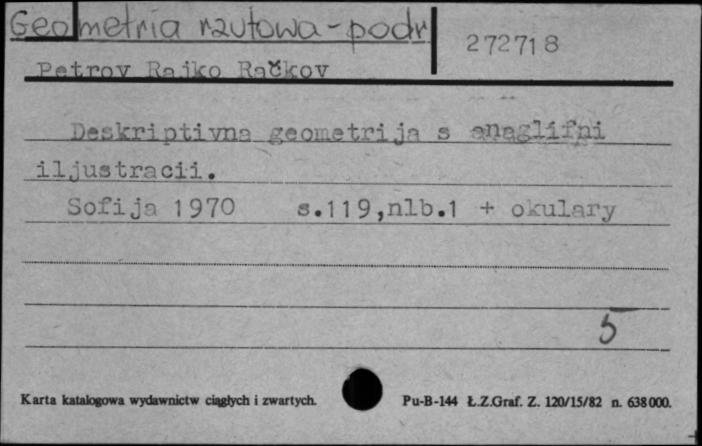 Geometria rzutowa-podr
272718
Petrov Rajko Račkov
Deskriptivna geometrija s anaglifni
iljustracii.
Sofija 1970 s.119,nlb.1 + okulary
5
Karta katalogowa wydawnictw ciągłych i zwartych. Pu-B-144 Ł.Z.Graf. Z. 120/15/82 n. 638000.